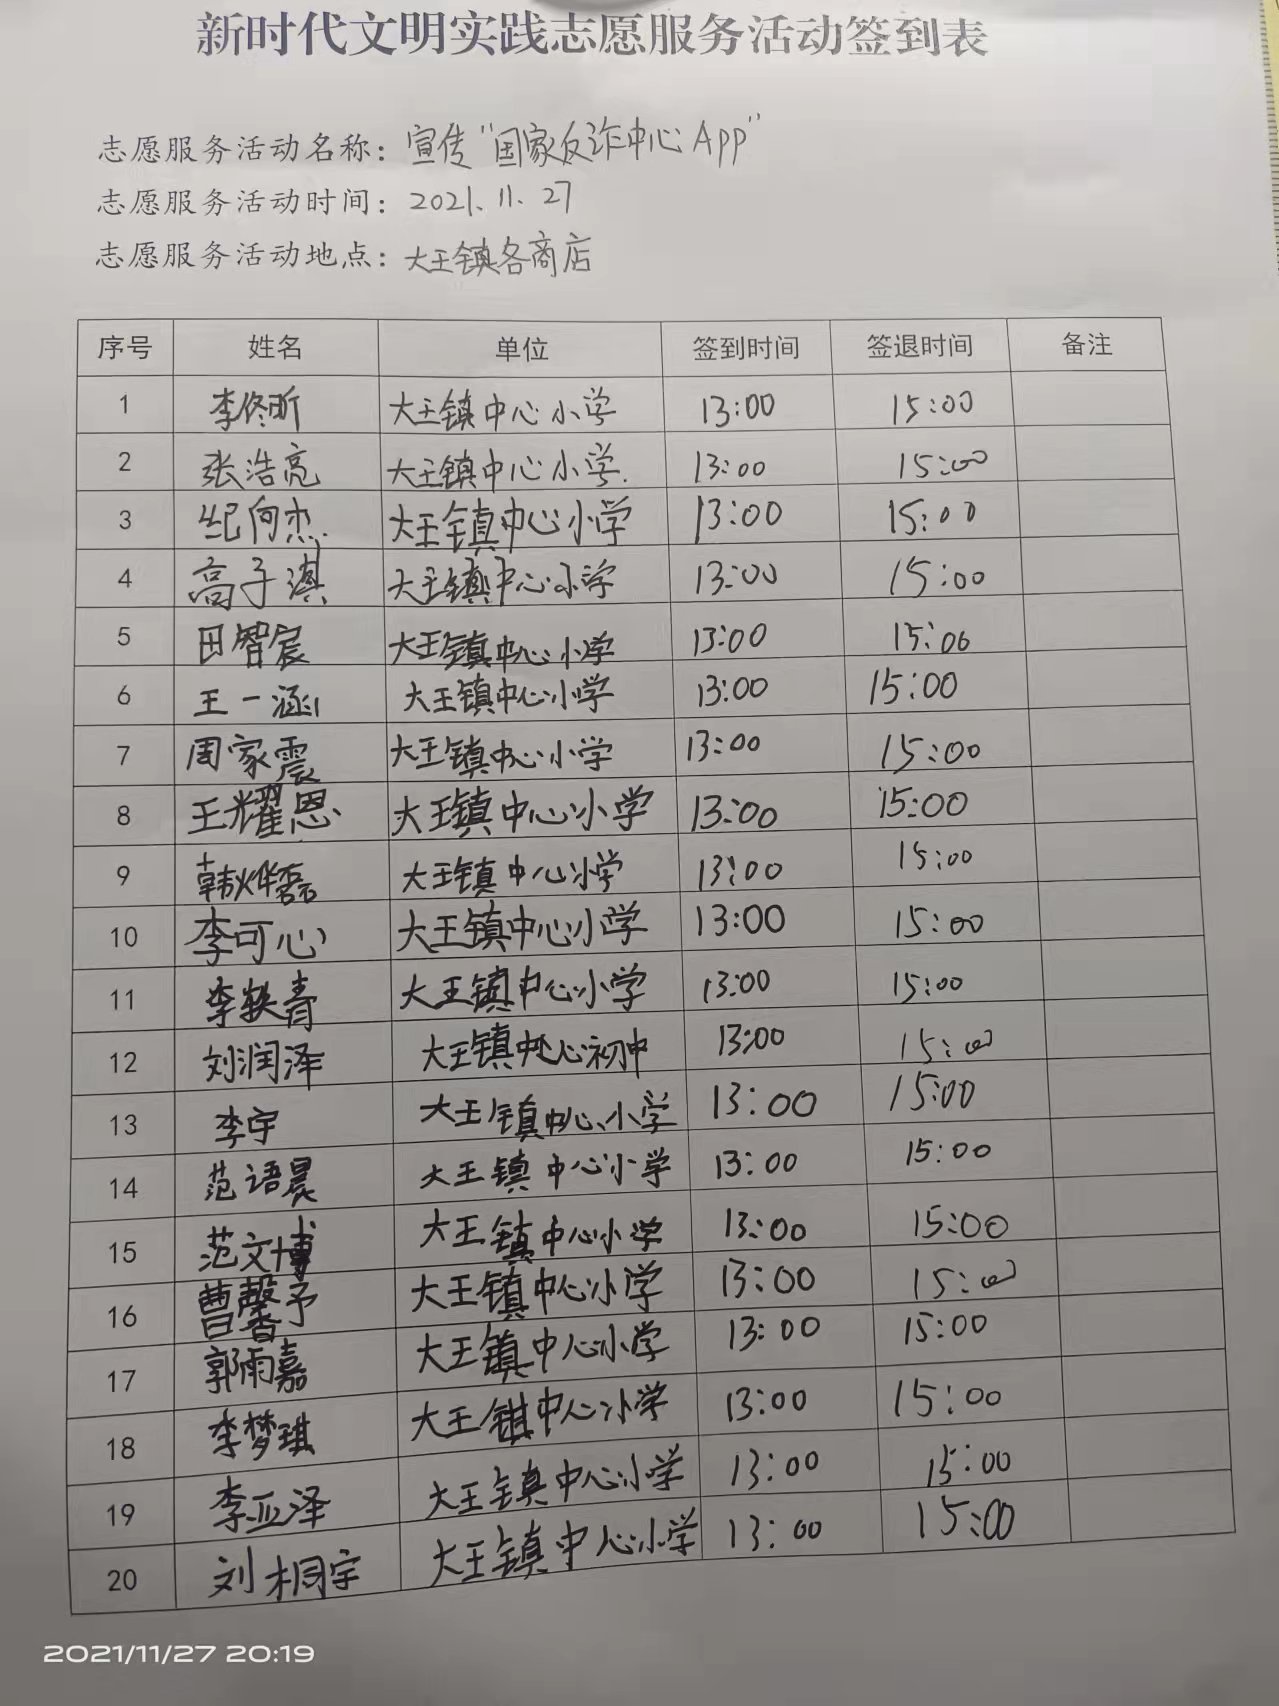 新时代文明实践志愿服务活动签到表
志愿服务活动名称：宣传“国家反诈中心App”
志愿服务活动时间：2021、11、27
志愿服务活动地点：大王镇各商店
序号 姓名 单位 签到时间 签退时间 备注
1 李佟昕 大王镇中心小学 13:00 15:00
2 张浩亮 大王镇中心小学. 13:00 15:00
3 纪向杰 大王镇中心小学 13:00 15:00
4 高子淇 大王镇中心小学 13:00 15:00
5 田智宸 大王镇中心小学 13:00 15:00
6 王一涵 大王镇中心小学 13:00 15:00
7 周家震 大王镇中心小学 13:00 15:00
8 王耀恩 大王镇中心小学 13:00 15:00
9 韩烨磊 大王镇中心小学 13:00 15:00
10 李可心 大王镇中心小学 13:00 15:00
11 李轶青 大王镇中心小学 13:00 15:00
12 刘润泽 大王镇中心初中 13:00 15:00
13 李宇 大王镇中心小学 13:00 15:00
14 范语晨 大王镇中心小学 13:00 15:00
15 范文博 大王镇中心小学 13:00 15:00
16 曹馨予 大王镇中心小学 13:00 15:00
17 郭雨嘉 大王镇中心小学 13:00 15:00
18 李梦琪 大王镇中心小学 13:00 15:00
19 李亚泽 大王镇中心小学 13:00 15:00
20 刘桐宇 大王镇中心小学 13:00 15:00
2021/11/27 20:19